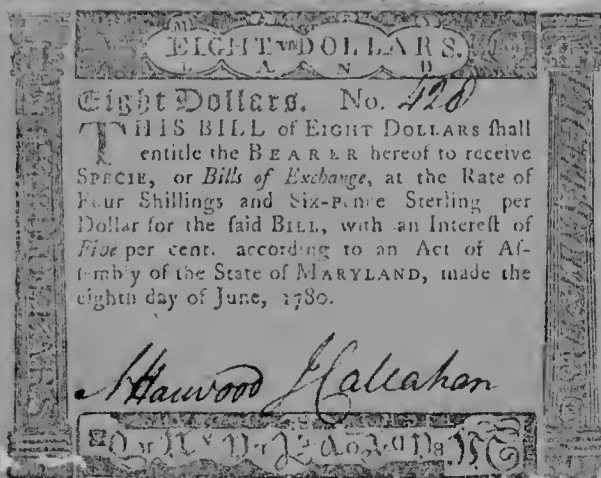 EIGHT DOLLARS.
LAND
Eight Dollars. No. 428
THIS BILL of EIGHT DOLLARS ſhall
entitle the BEARER hereof to receive
SPECIE, or Bills of Exchange, at the Rate of
Four Shillings and Six-pence Sterling per
Dollar for the ſaid BILL, with an Intereſt of
Five per cent. according to an Act of Aſ-
ſembly of the State of MARYLAND, made the
eighth day of June, 1780.
Harwood J Callahan